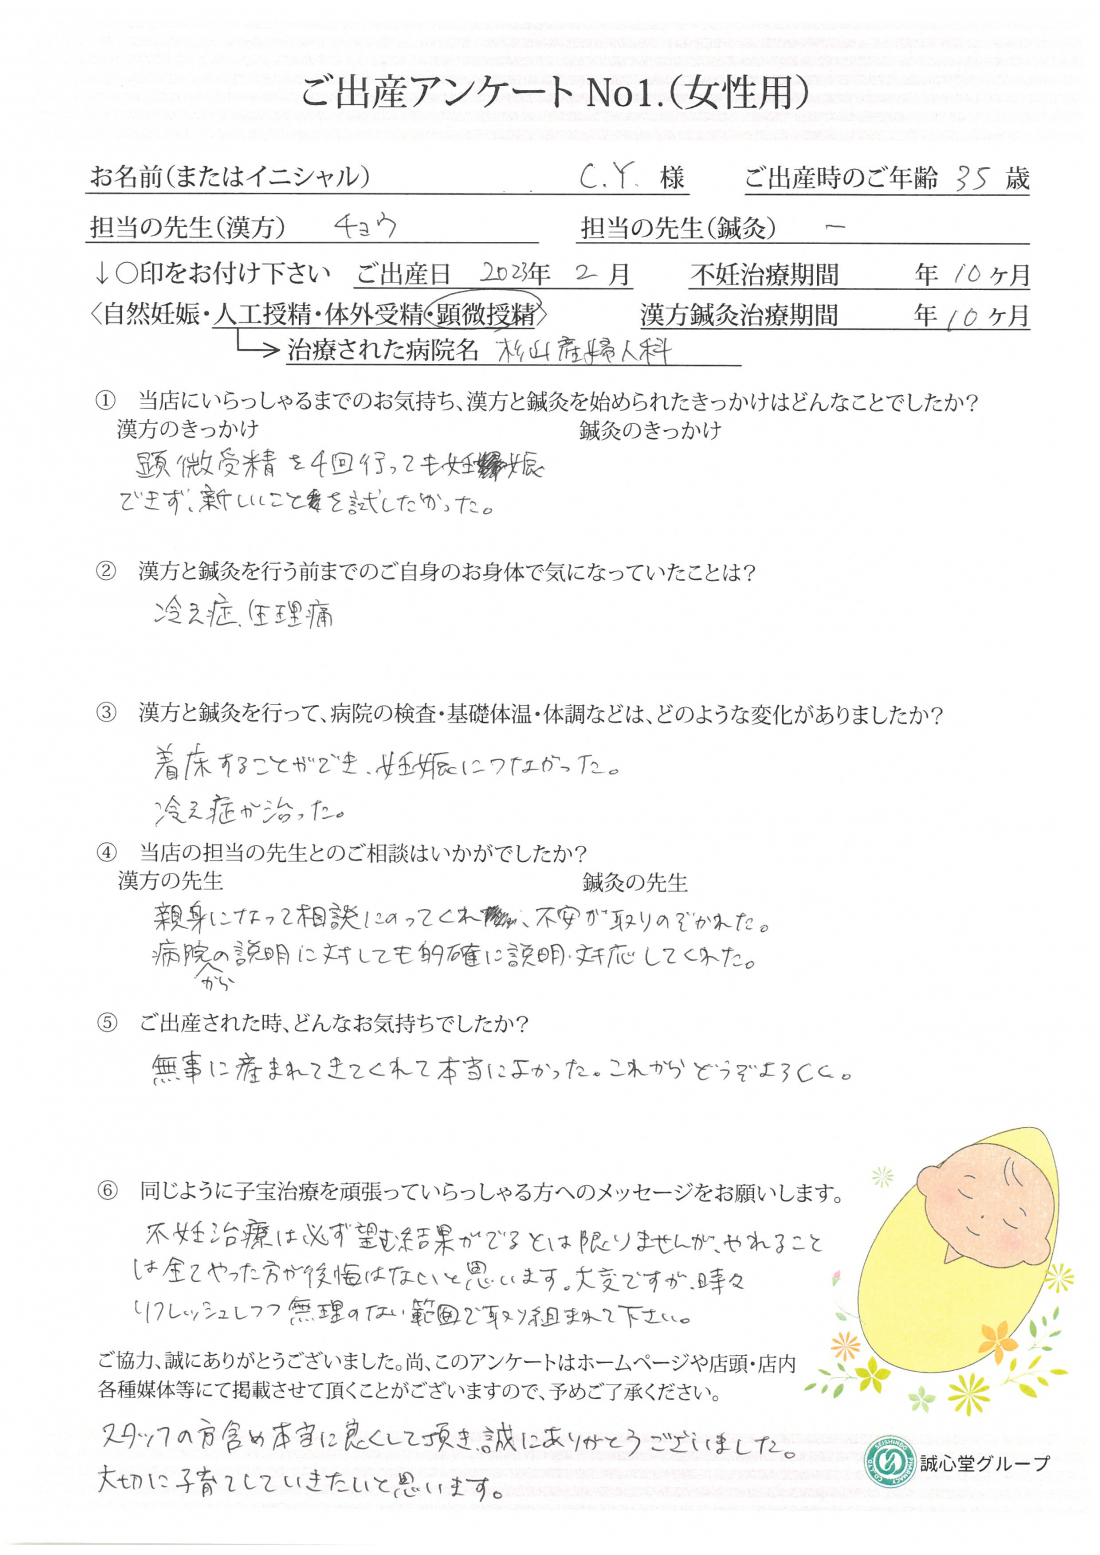 ご出産アンケート No1.(女性用)
お名前(またはイニシャル) C.Y. 様 ご出産時のご年齢 35 歳
担当の先生(漢方) チョウ 担当の先生(鍼灸) ー
↓○印をお付け下さい ご出産日 2023年 2 月 不妊治療期間 年 10 ヶ月
〈自然妊娠・人工授精・体外受精・顕微授精〉 漢方鍼灸治療期間 年 10 ヶ月
治療された病院名 杉山産婦人科
① 当店にいらっしゃるまでのお気持ち、漢方と鍼灸を始められたきっかけはどんなことでしたか?
漢方のきっかけ 鍼灸のきっかけ
顕微受精を4回行っても妊娠
できず、新しいことを試したかった。
② 漢方と鍼灸を行う前までのご自身のお身体で気になっていたことは?
冷え症、生理痛
③ 漢方と鍼灸を行って、病院の検査・基礎体温・体調などは、どのような変化がありましたか?
着床することができ、妊娠につながった。
冷え症が治った。
④ 当店の担当の先生とのご相談はいかがでしたか?
漢方の先生 鍼灸の先生
親身になって相談にのってくれ、不安が取りのぞかれた。
病院からの説明に対しても的確に説明・対応してくれた。
⑤ ご出産された時、どんなお気持ちでしたか?
無事に産まれてきてくれて本当によかった。これからどうぞよろしく。
⑥ 同じように子宝治療を頑張っていらっしゃる方へのメッセージをお願いします。
不妊治療は必ず望む結果がでるとは限りませんが、やれること
は全てやった方が後悔はないと思います。大変ですが、時々
リフレッシュしつつ無理のない範囲で取り組まれて下さい。
ご協力、誠にありがとうございました。尚、このアンケートはホームページや店頭・店内
各種媒体等にて掲載させて頂くことがございますので、予めご了承ください。
スタッフの方含め本当に良くして頂き、誠にありがとうございました。
大切に子育てしていきたいと思います。
誠心堂グループ